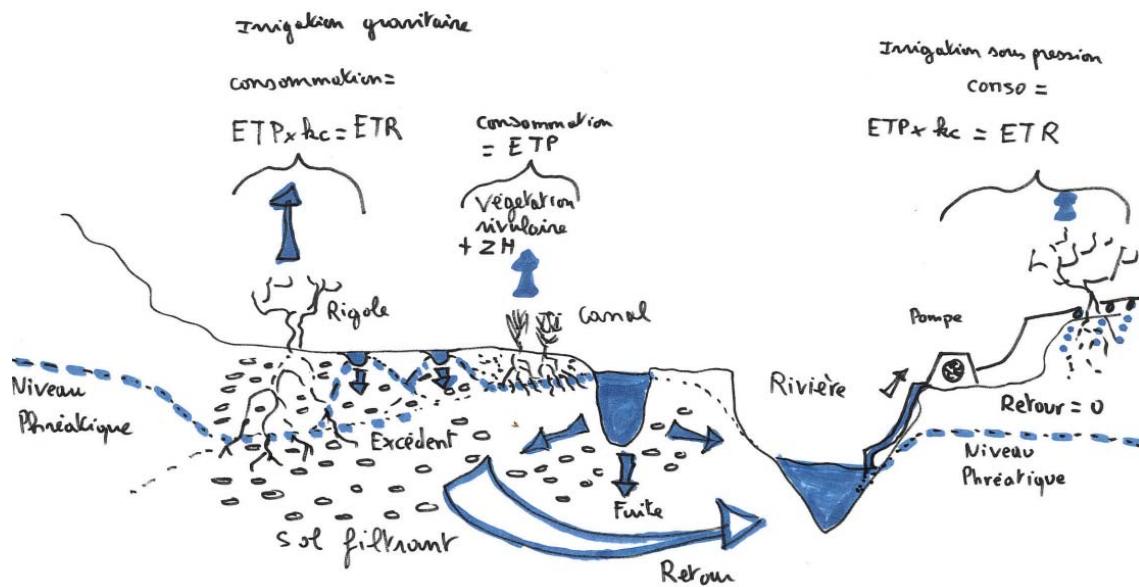 Irrigation gravitaire
consommation =
ETP x kc = ETR
consommation
= ETP
Végetation
rivulaire
+ ZH
Irrigation sous pression
conso =
ETP x kc = ETR
Rigole
Canal
Pompe
Rivière
Retour = 0
Niveau
Phréatique
Niveau
Phréatique
Excédent
Fuite
Sol filtrant
Retour